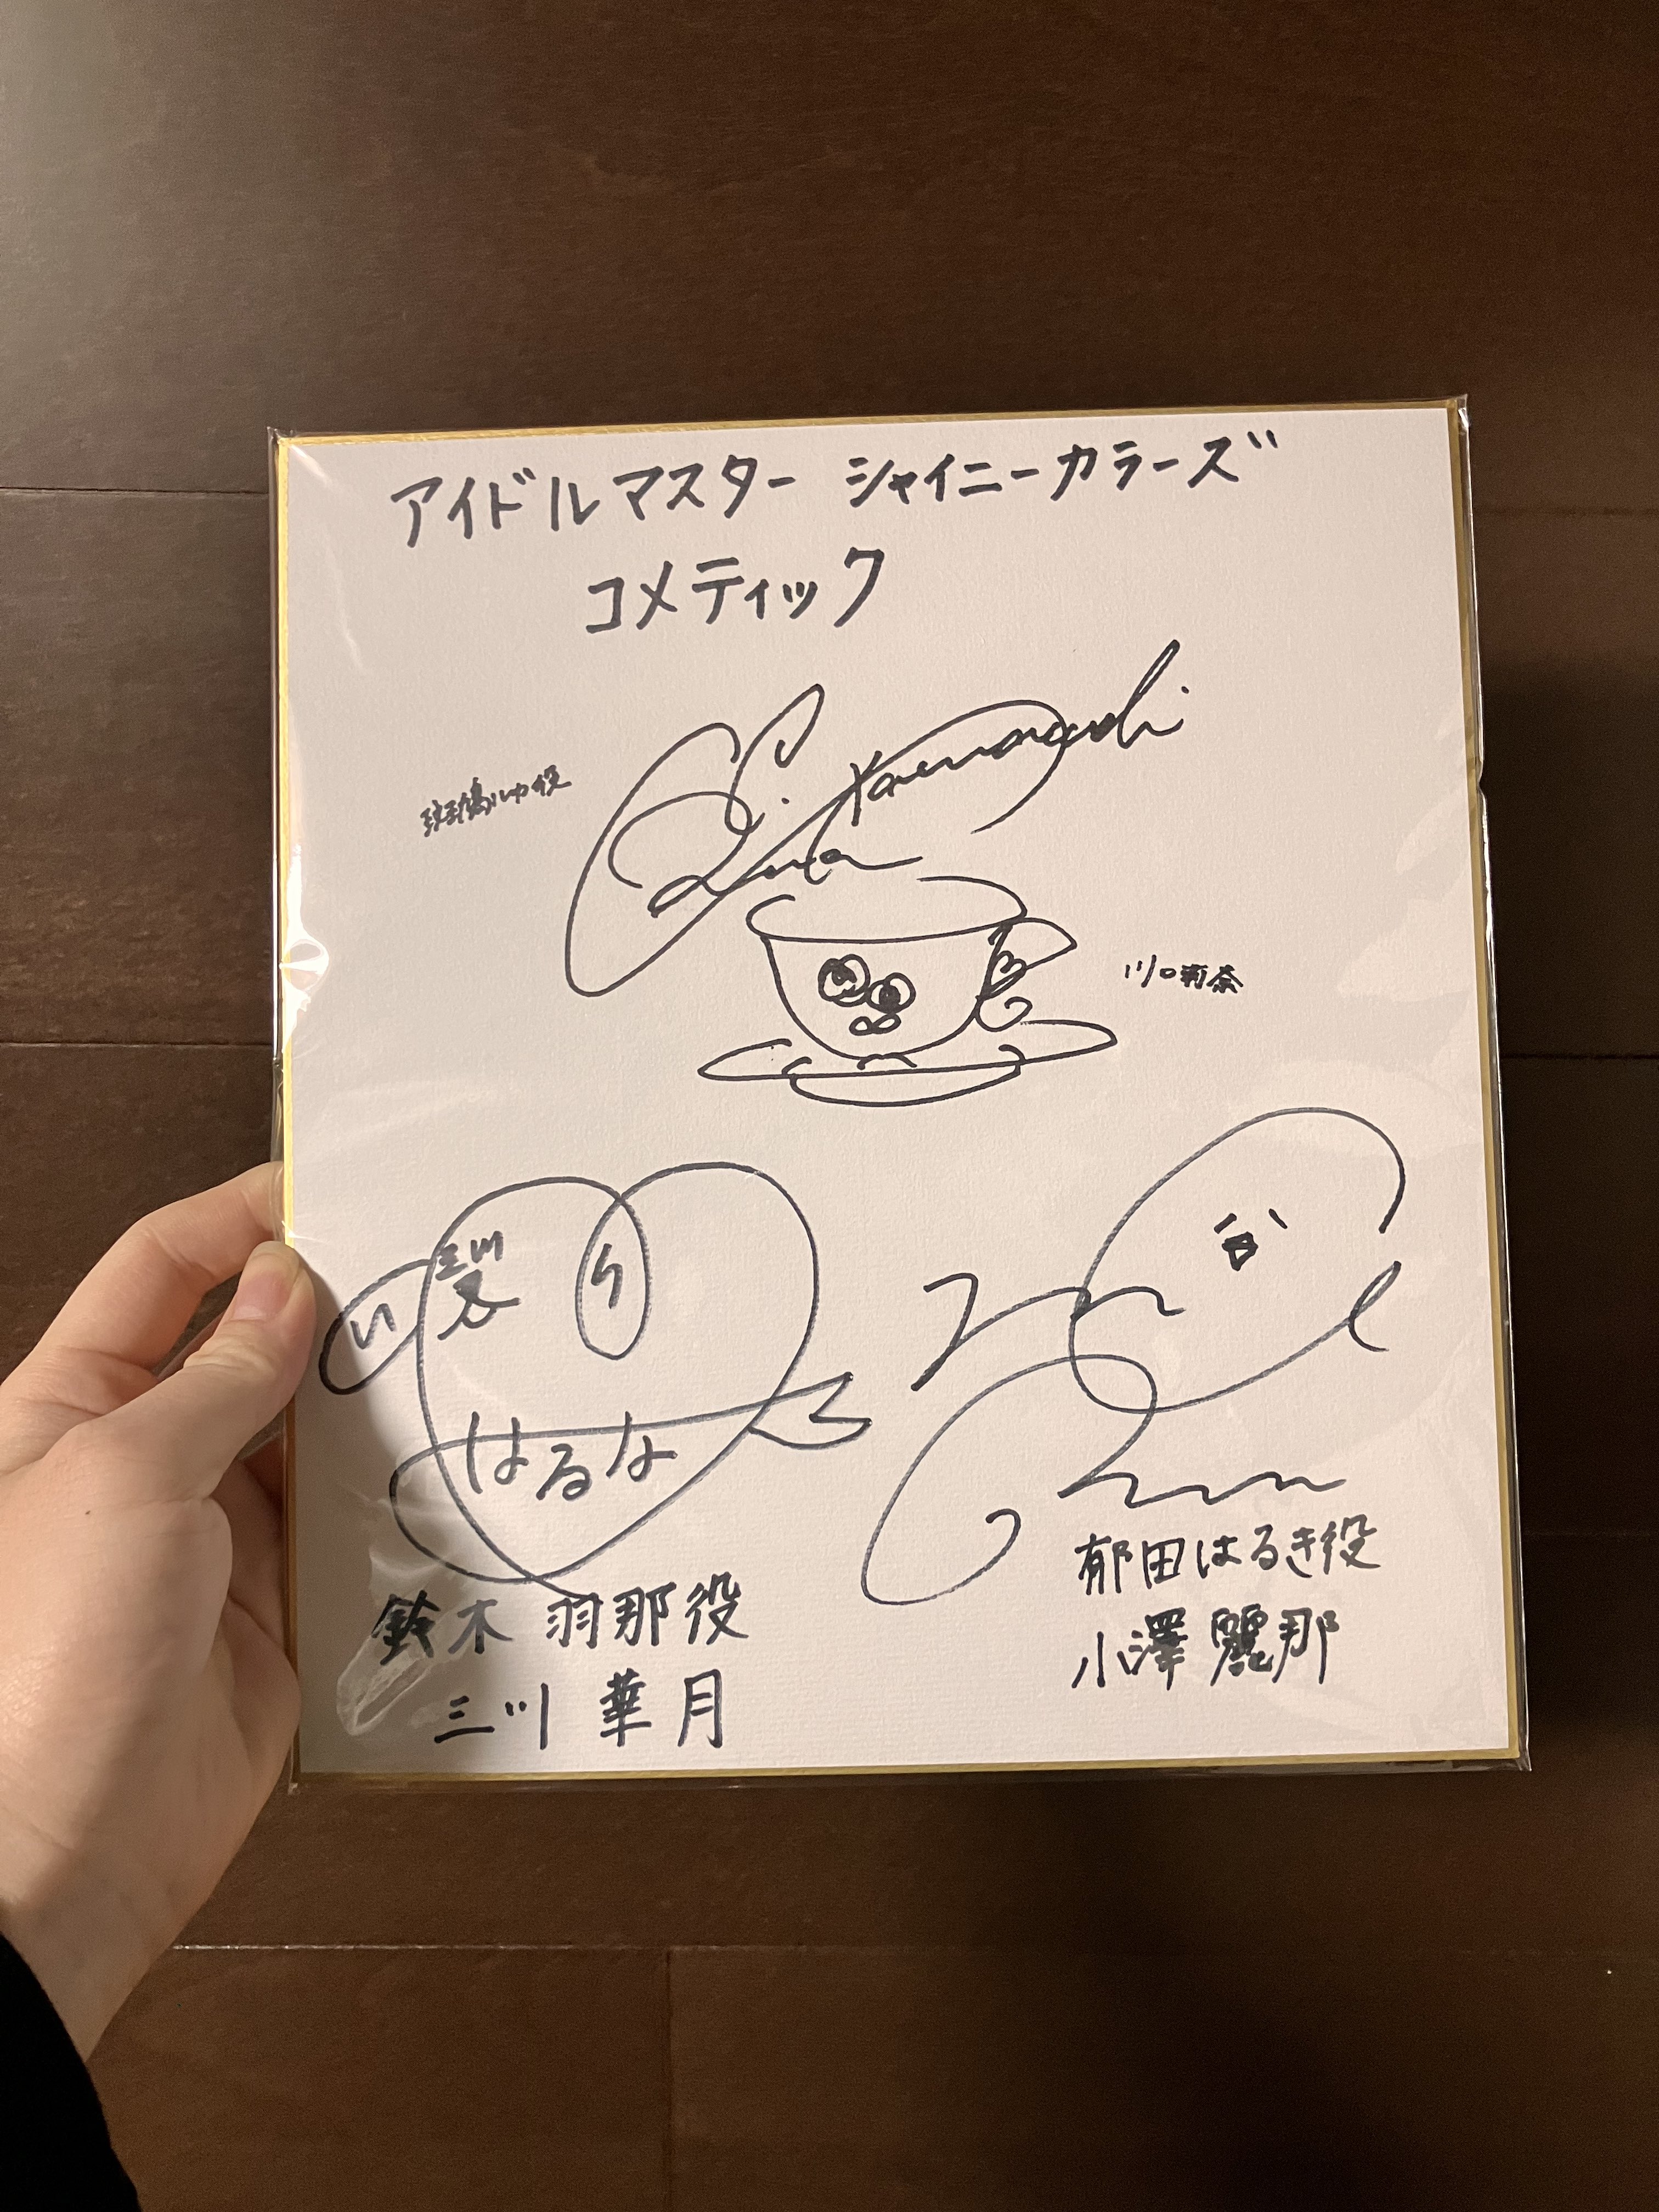 アイドルマスター シャイニーカラーズ
コメティック
斑鳩ルカ役
川口莉奈
い
三川
り
はるな
鈴木 羽那役
三川 華月
郁田はるき役
小澤 麗那